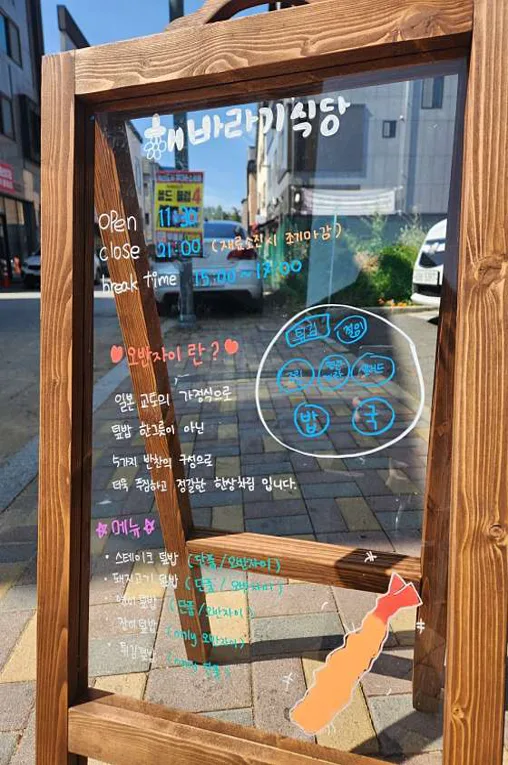 해바라기식당
open 11:30
close 21:00 (재료소진시 조기마감)
break time 15:00~17:00
오반자이 란?
일본 교토의 가정식으로
덮밥 한그릇이 아닌
5가지 반찬의 구성으로
더욱 푸짐하고 정갈한 한상차림 입니다.
튀김 절임
조림 샐러드
밥 국
메뉴
• 스테이크 덮밥 (단품/오반자이)
• 돼지고기 덮밥 (단품/오반자이)
• 연어 덮밥 (단품/오반자이)
• 장어 덮밥 (only 오반자이)
• 튀김덮밥